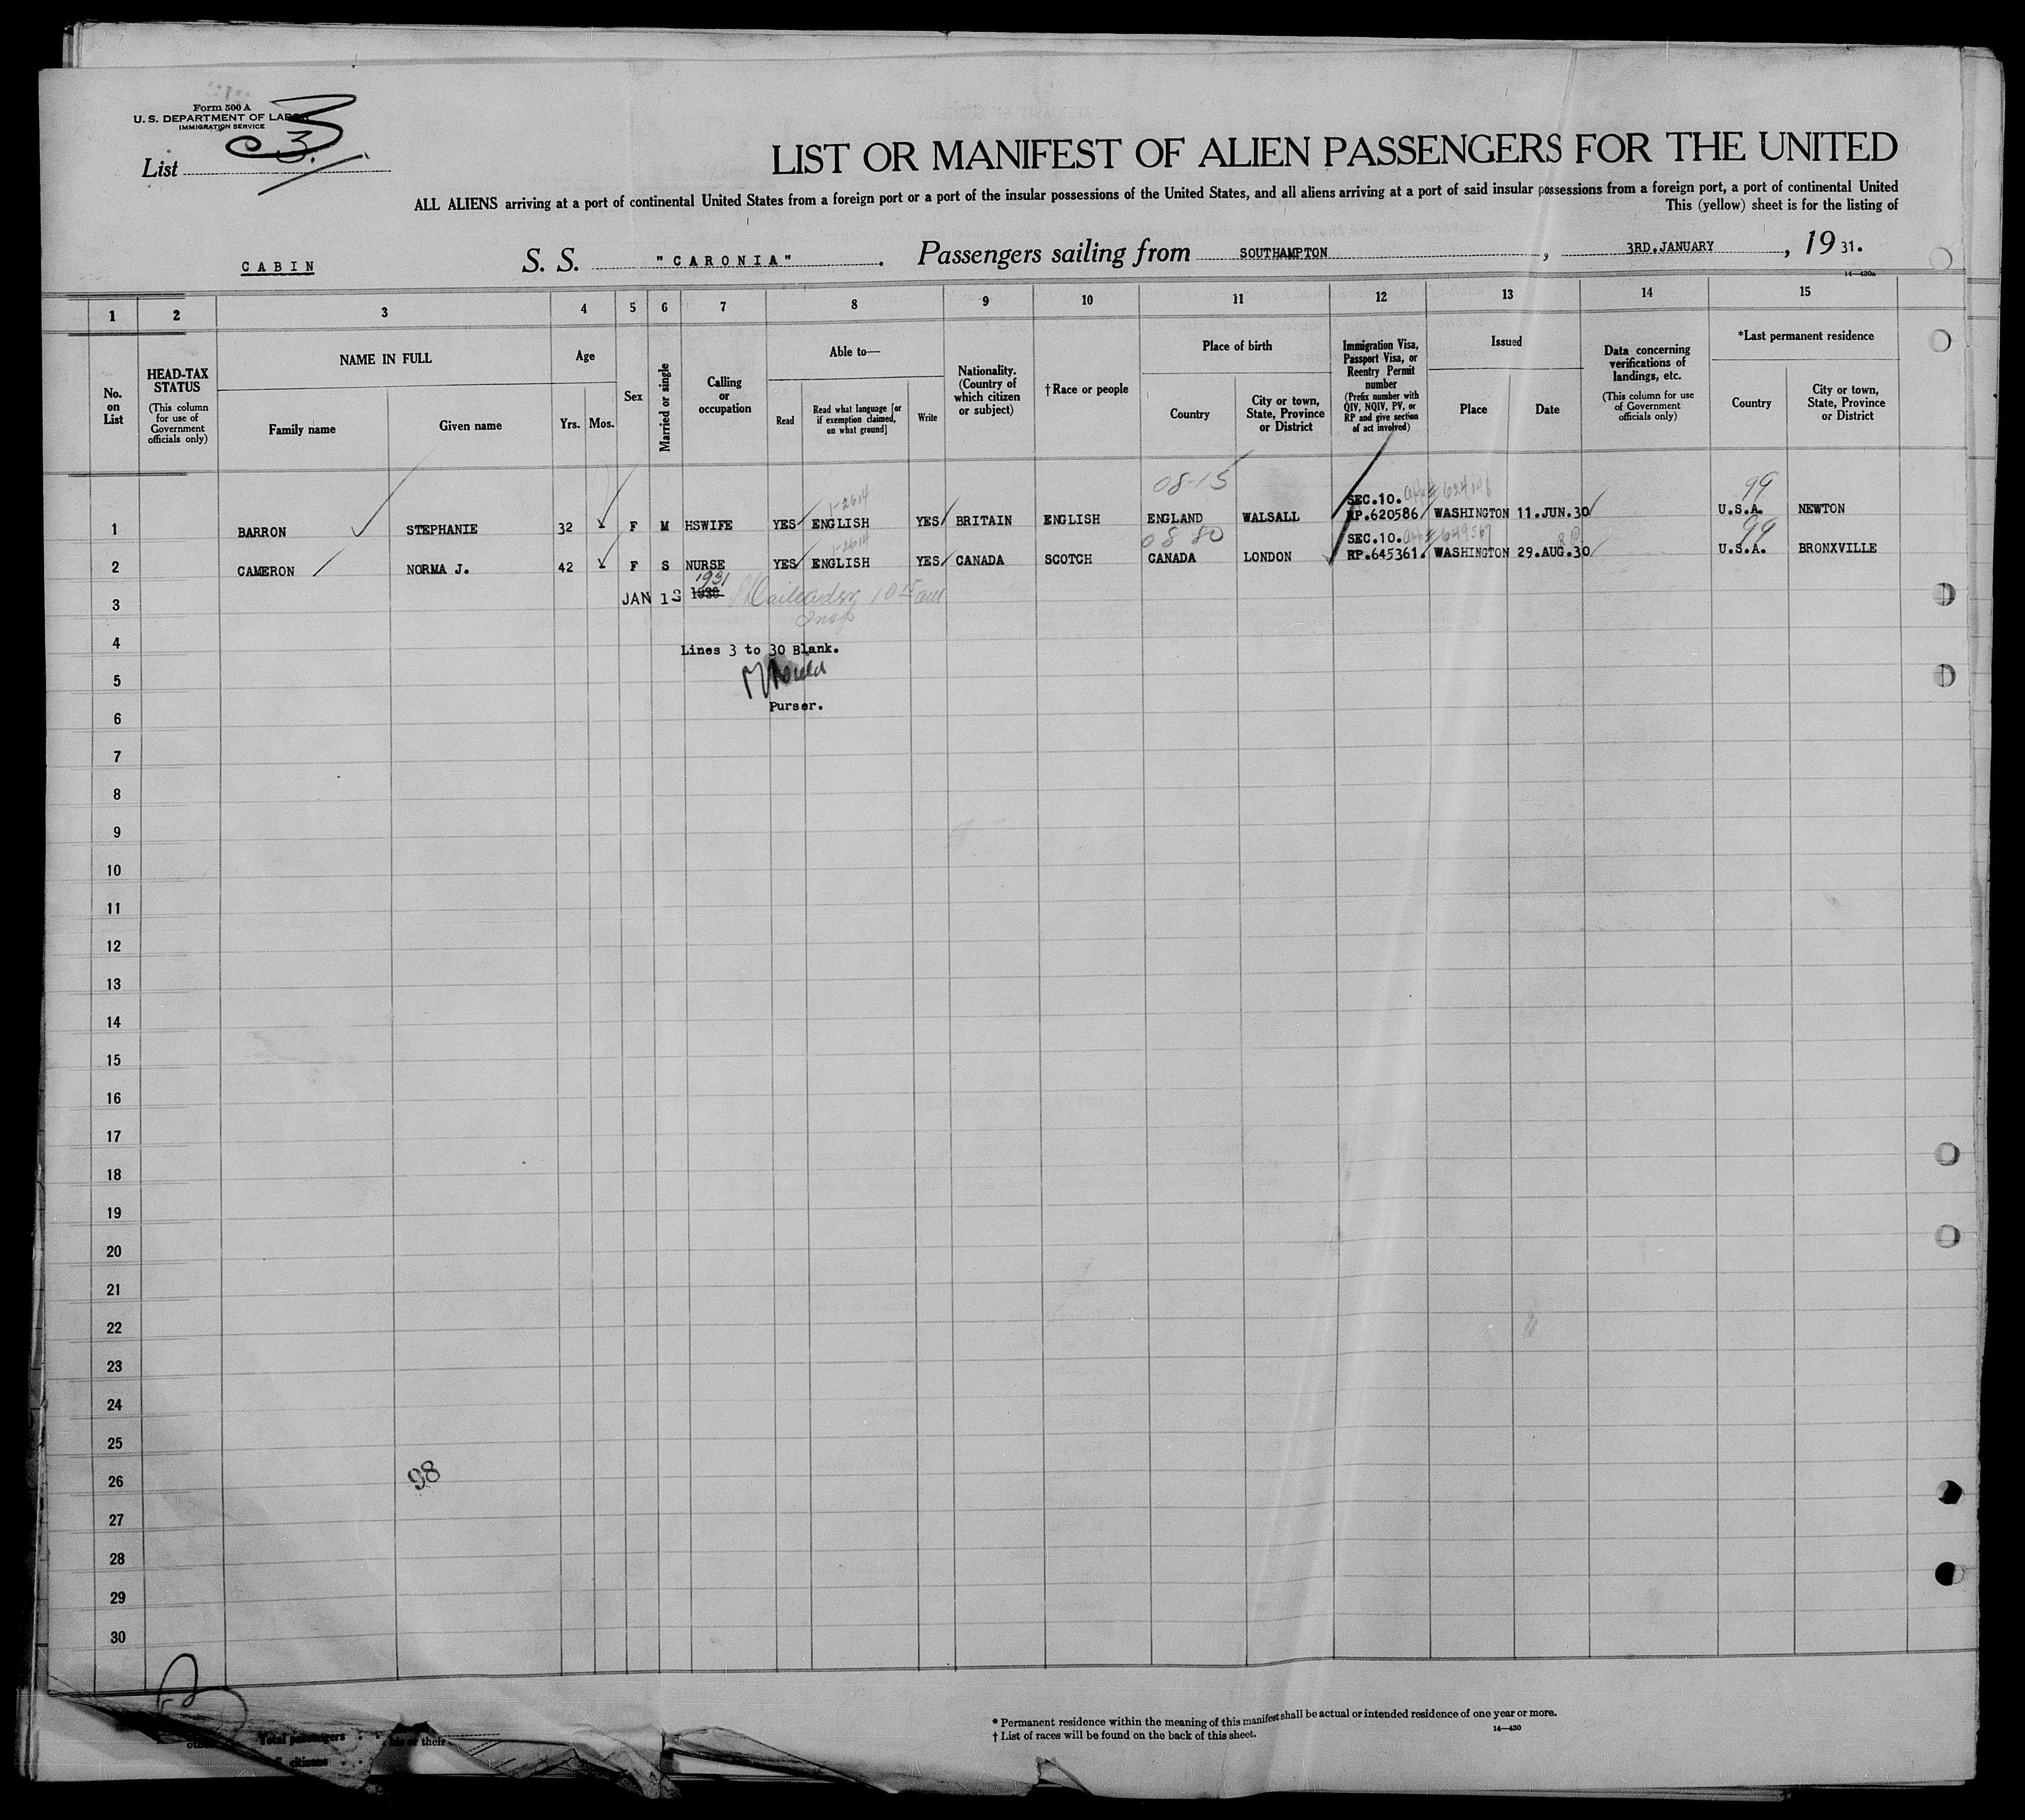 Form 500 A
U. S. DEPARTMENT OF LABOR
IMMIGRATION SERVICE
3
List 3.
LIST OR MANIFEST OF ALIEN PASSENGERS FOR THE UNITED
ALL ALIENS arriving at a port of continental United States from a foreign port or a port of the insular possessions of the United States, and all aliens arriving at a port of said insular possessions from a foreign port, a port of continental United
This (yellow) sheet is for the listing of
CABIN S. S. "CARONIA". Passengers sailing from SOUTHAMPTON, 3RD.JANUARY, 1931.
14—430a
1 2 3 4 5 6 7 8 9 10 11 12 13 14 15
No. on List
HEAD-TAX STATUS
(This column for use of Government officials only)
NAME IN FULL
Family name
Given name
Age
Yrs.
Mos.
Sex
Married or single
Calling or occupation
Able to—
Read
Read what language [or if exemption claimed, on what ground]
Write
Nationality. (Country of which citizen or subject)
†Race or people
Place of birth
Country
City or town, State, Province or District
Immigration Visa, Passport Visa, or Reentry Permit number
(Prefix number with QIV, NQIV, PV, or RP and give section of act involved)
Issued
Place
Date
Data concerning verifications of landings, etc.
(This column for use of Government officials only)
*Last permanent residence
Country
City or town, State, Province or District
1-2614 08-15 SEC.10. 99
1 BARRON STEPHANIE 32 - F M HSWIFE YES ENGLISH YES BRITAIN ENGLISH ENGLAND WALSALL RP.620586 WASHINGTON 11.JUN.30 U.S.A. NEWTON
1-2614 08 80 SEC.10. 99
2 CAMERON NORMA J. 42 - F S NURSE YES ENGLISH YES CANADA SCOTCH CANADA LONDON RP.645361. WASHINGTON 29.AUG.30 U.S.A. BRONXVILLE
1931
3 JAN 13 1930
Insp
4 Lines 3 to 30 Blank.
5
6 Purser.
7
8
9
10
11
12
13
14
15
16
17
18
19
20
21
22
23
24
25
26 98
27
28
29
30
* Permanent residence within the meaning of this manifest shall be actual or intended residence of one year or more.
† List of races will be found on the back of this sheet.
14—430
Total passengers
his or their
citizens